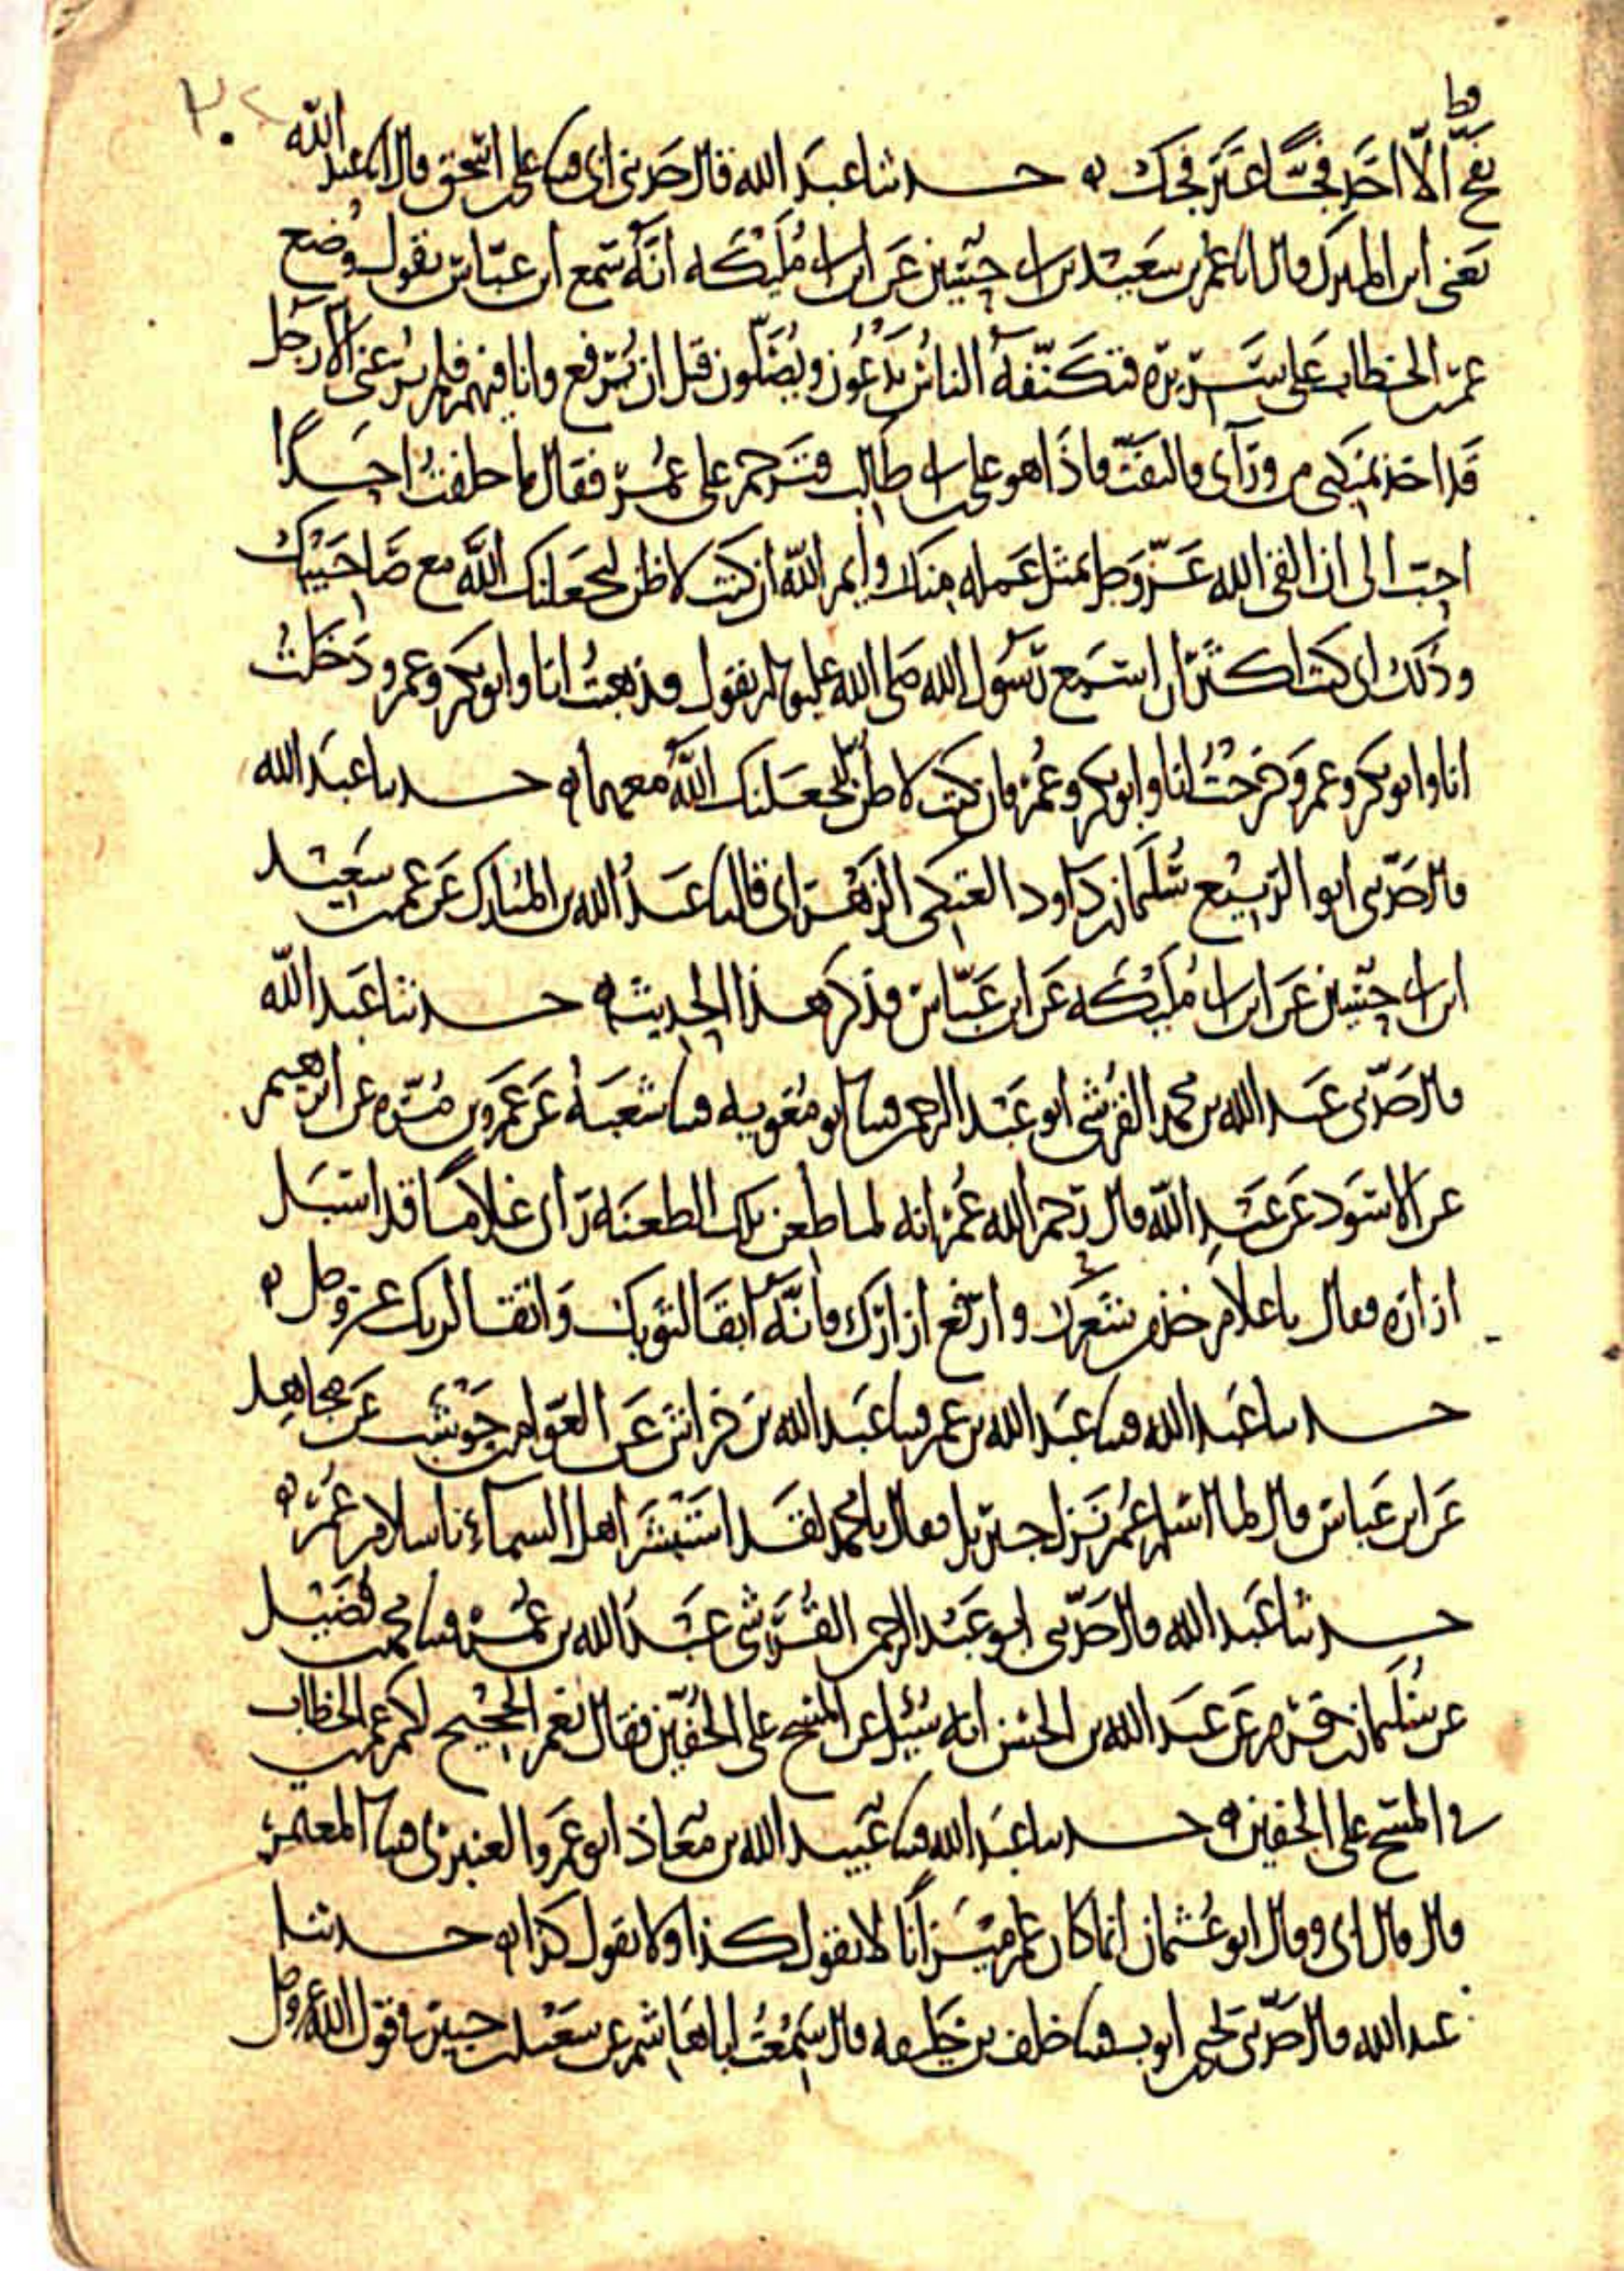 قط
بفج الا اخذ فجا غير فجك ه حدثنا عبد الله قال حدثني ابي قثنا علي بن اسحق قال انا عبد الله
يعني ابن المبرك قال انا عمر بن سعيد بن ابي حسين عن ابن ابي مليكه انه سمع ابن عباس يقول وضع
عمر بن الخطاب على سريره فتكنفه الناس يدعون ويصلون قبل ان يرفع وانا فيهم فلم يرعني الا رجل
قد اخذ بمنكبي من وراي فالتفت فاذا هو علي بن ابي طالب فترحم على عمر فقال ما خلفت احدا
احب الي ان القى الله عز وجل بمثل عمله منك وايم الله ان كنت لاظن ليجعلنك الله مع صاحبيك
وذلك اني كنت اكثر ان اسمع رسول الله صلى الله عليه وسلم يقول فذهبت انا وابو بكر وعمر ودخلت
انا وابو بكر وعمر وخرجت انا وابو بكر وعمر فان كنت لاظن ليجعلنك الله معهما ه حدثنا عبد الله
قال حدثني ابو الربيع سليمان بن داود العتكي الزهراني قال نا عبد الله بن المبارك عن عمر بن سعيد
ابن ابي حسين عن ابن ابي مليكه عن ابن عباس فذكر هذا الحديث ه حدثنا عبد الله
قال حدثني عبد الله بن محمد القرشي ابو عبد الرحمن قثنا ابو معويه قثنا شعبة عن عمرو بن مره عن ابرهيم
عن الاسود عن عبد الله قال رحم الله عمر انه لما طعن تلك الطعنة راى غلاما قد اسبل
ازاره فقال يا غلام خذ من شعرك وارفع ازارك فانه ابقا لثوبك واتقا لربك عز وجل ه
حدثنا عبد الله قثنا عبد الله بن عمر قثنا عبد الله بن خراش عن العوام بن حوشب عن مجاهد
عن ابن عباس قال لما اسلم عمر نزل جبريل فقال يا محمد لقد استبشر اهل السماء باسلام عمر ه
حدثنا عبد الله قال حدثني ابو عبد الرحمن القرشي عبد الله بن عمر قثنا محمد بن فضيل
عن سليمان بن قرم عن عبد الله بن الحسن انه سئل عن المسح على الخفين فقال نعم الحجيج لكم عمر بن الخطاب
في المسح على الخفين ه حدثنا عبد الله قثنا عبيد الله بن معاذ ابو عمرو العنبري قثنا المعتمر
قال قال ابي وقال ابو عثمان انما كان عمر ميزانا لا يقول كذا ولا يقول كذا ه حدثنا
عبد الله قال حدثني يحيى بن ايوب قثنا خلف بن خليفه قال سمعت ابا هاشم عن سعيد بن جبير في قول الله عز وجل